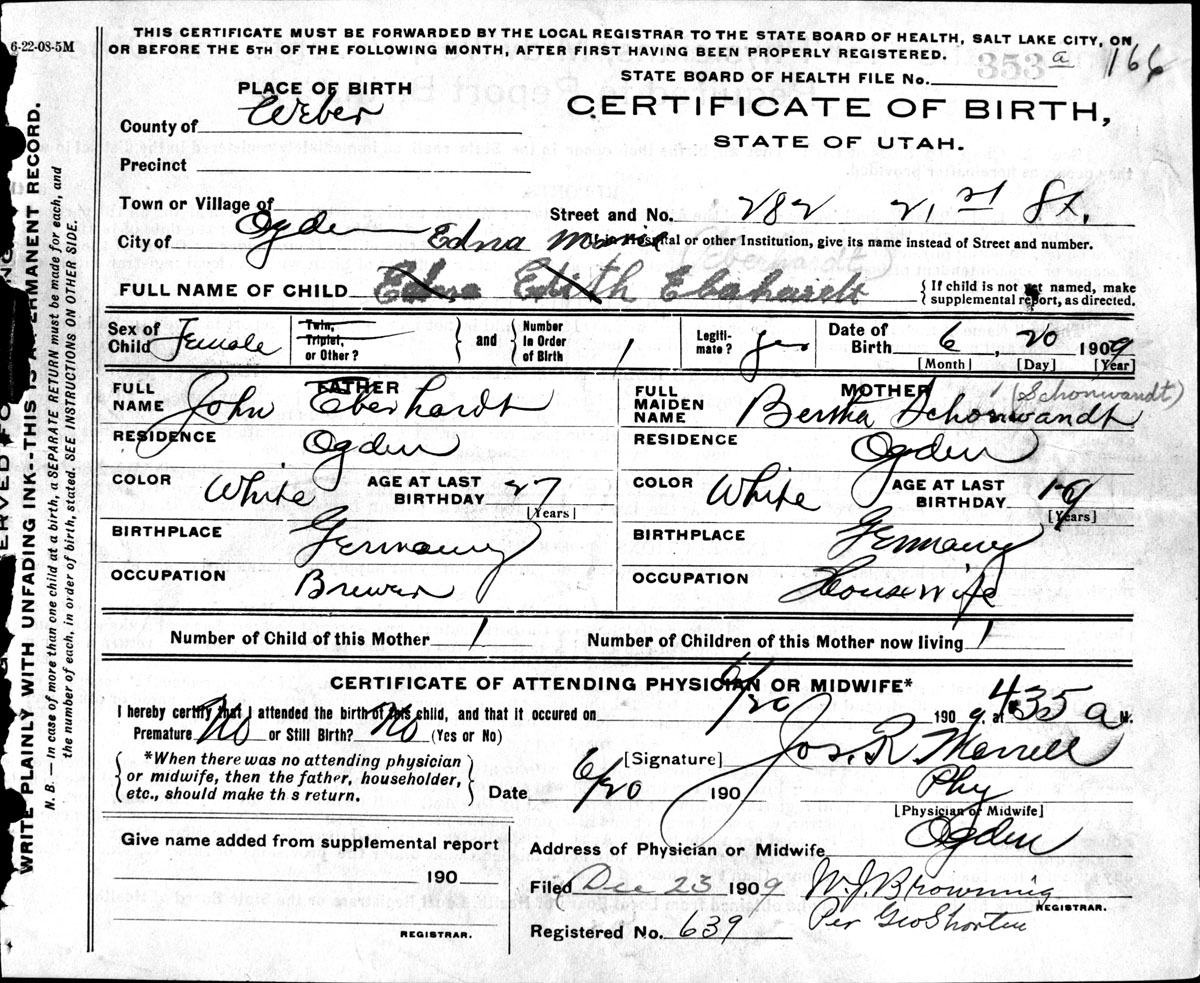 6-22-08-5M
THIS CERTIFICATE MUST BE FORWARDED BY THE LOCAL REGISTRAR TO THE STATE BOARD OF HEALTH, SALT LAKE CITY, ON
OR BEFORE THE 5TH OF THE FOLLOWING MONTH, AFTER FIRST HAVING BEEN PROPERLY REGISTERED.
353 a 166
STATE BOARD OF HEALTH FILE No.
PLACE OF BIRTH
CERTIFICATE OF BIRTH,
STATE OF UTAH.
County of Weber
Precinct
Town or Village of
Street and No. 282 21st St.
City of Ogden
Edna
If in Hospital or other Institution, give its name instead of Street and number.
(Eberhardt)
FULL NAME OF CHILD Edith Ebahardt
{ If child is not yet named, make
supplemental report, as directed.
Sex of Child Female
Twin, Triplet, or Other?
} and {
Number in Order of Birth 1
Legiti-mate? yes
Date of Birth 6, 20 1909
[Month] [Day] [Year]
FATHER
FULL NAME John Eberhardt
RESIDENCE Ogden
COLOR White AGE AT LAST BIRTHDAY 27
[Years]
BIRTHPLACE Germany
OCCUPATION Brewer
MOTHER (Schonwandt)
FULL MAIDEN NAME Bertha Schonwandt
RESIDENCE Ogden
COLOR White AGE AT LAST BIRTHDAY
[Years]
BIRTHPLACE Germany
OCCUPATION Housewife
Number of Child of this Mother 1
Number of Children of this Mother now living 1
CERTIFICATE OF ATTENDING PHYSICIAN OR MIDWIFE*
I hereby certify that I attended the birth of this child, and that it occured on 6/20 1909. at 435 a M.
Premature No or Still Birth? No (Yes or No)
*When there was no attending physician
or midwife, then the father, householder,
etc., should make th s return.
[Signature] Jos. R Morrell
Date 6/20 190
Phy
[Physician or Midwife]
Address of Physician or Midwife Ogden
Give name added from supplemental report
190
REGISTRAR.
Filed Dec 23 1909 W. J. Browning
REGISTRAR.
Registered No. 639 Per Geo Shorten
WRITE PLAINLY WITH UNFADING INK--THIS IS A PERMANENT RECORD.
N. B. — In case of more than one child at a birth, a SEPARATE RETURN must be made for each, and
the number of each, in order of birth, stated. SEE INSTRUCTIONS ON OTHER SIDE.